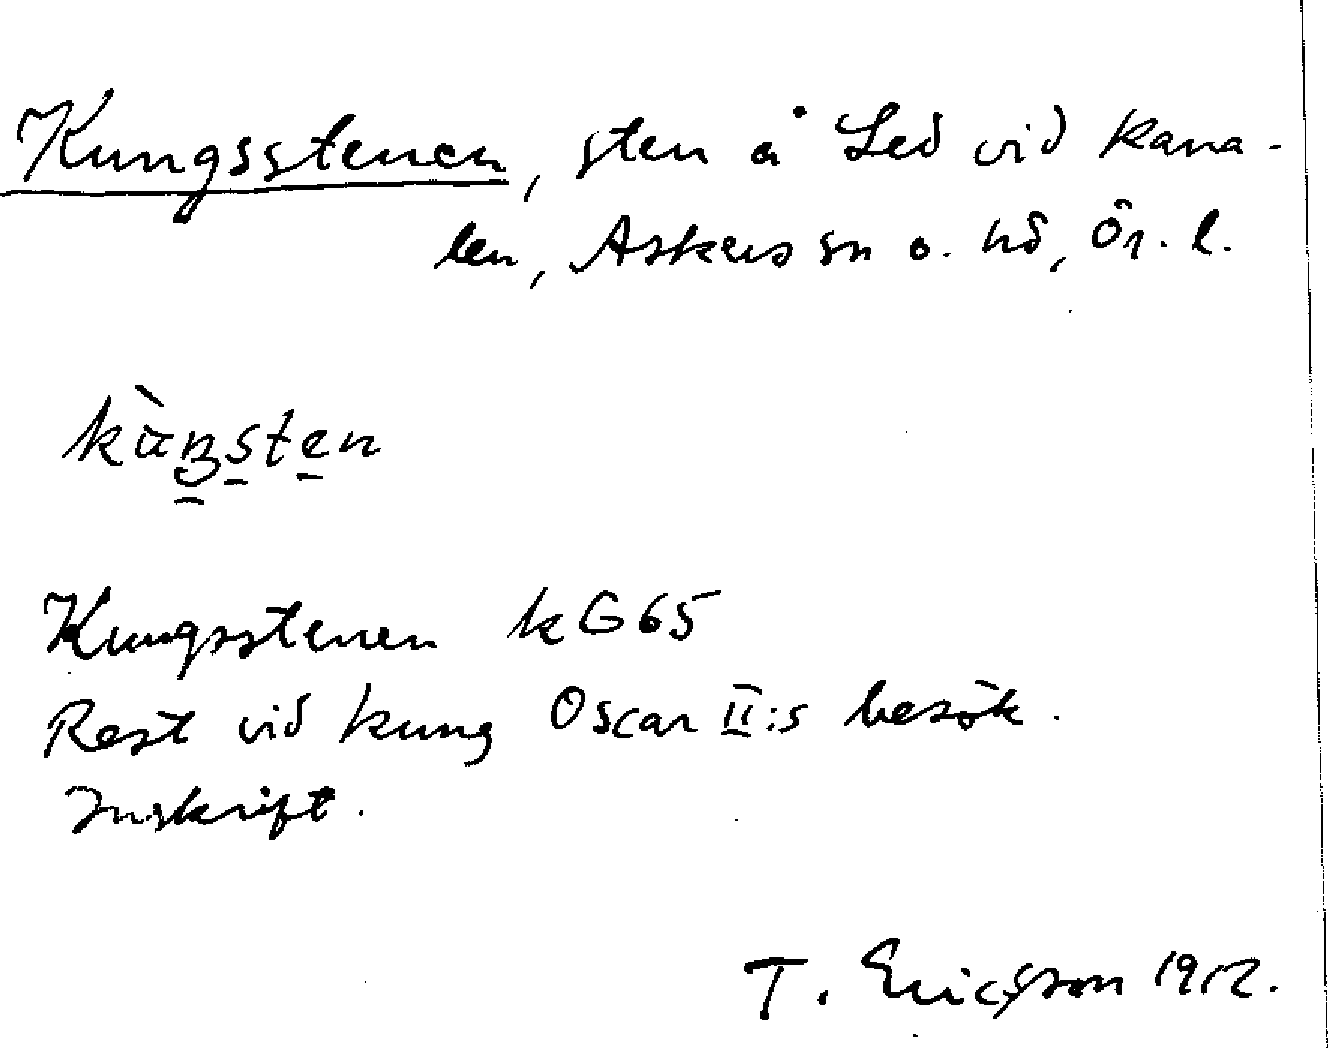 Kungsstenen, sten å Led vid kana-
len, Askers sn o. hd, Ör. l.
Kungsstenen kG65
Rest vid kung Oscar II:s besök.
Inskrift.
T. Ericsson 1912.